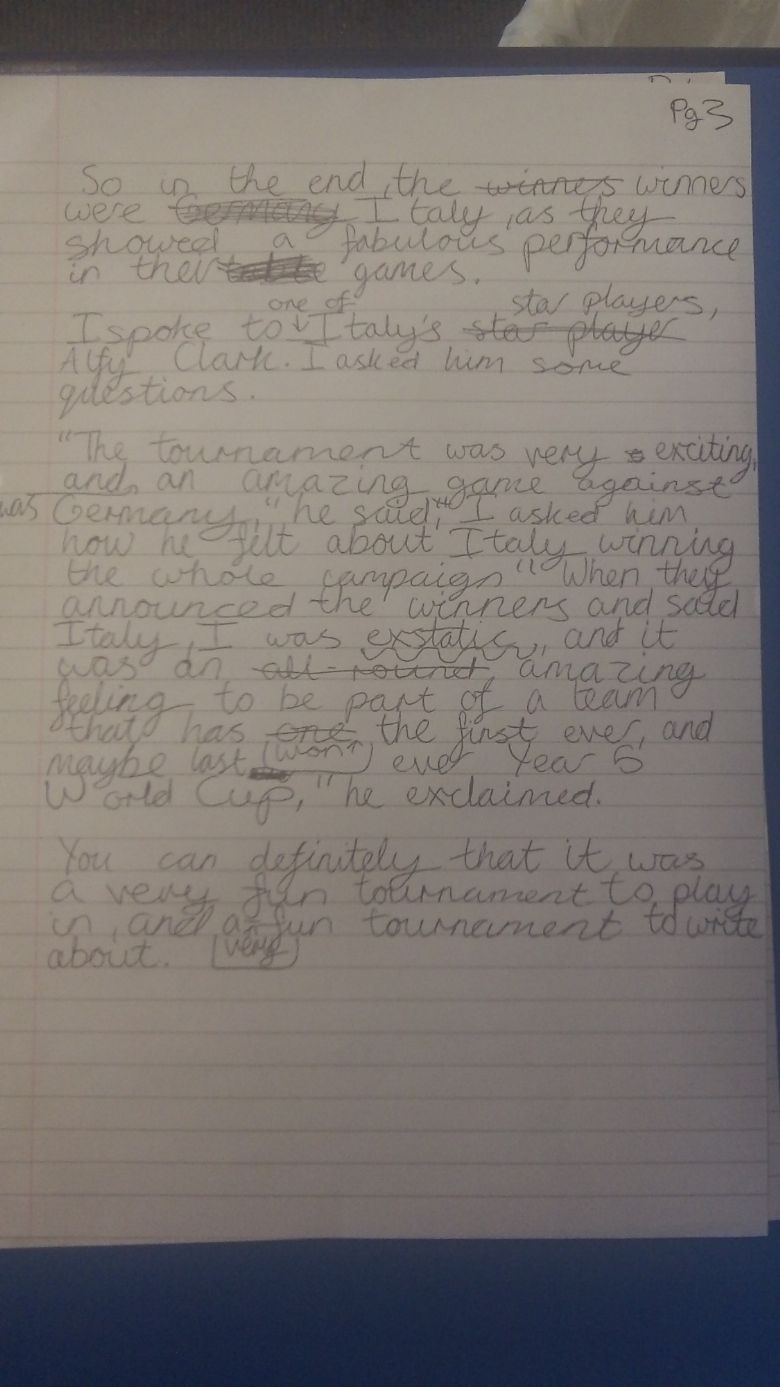 Pg3
So in the end, the winnes winners
were Germany Italy, as they
showed a fabulous performance
in their table games.
one of star players,
I spoke to ↓ Italy's star player
Alfy Clark. I asked him some
questions.
"The tournament was very exciting,
and an amazing game against
was Germany," he said," I asked him
how he felt about Italy winning
the whole campaign" "When they
announced the winners and said
Italy, I was exstatic, and it
was an all-round, amazing
feeling to be part of a team
that has one the first ever, and
maybe last (won) ever Year 6
World Cup," he exclaimed.
You can definitely that it was
a very fun tournament to play
in, and a fun tournament to write
about. very